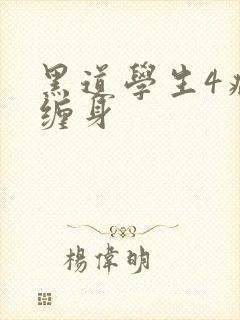 黑道學生4
缠身
楊偉明